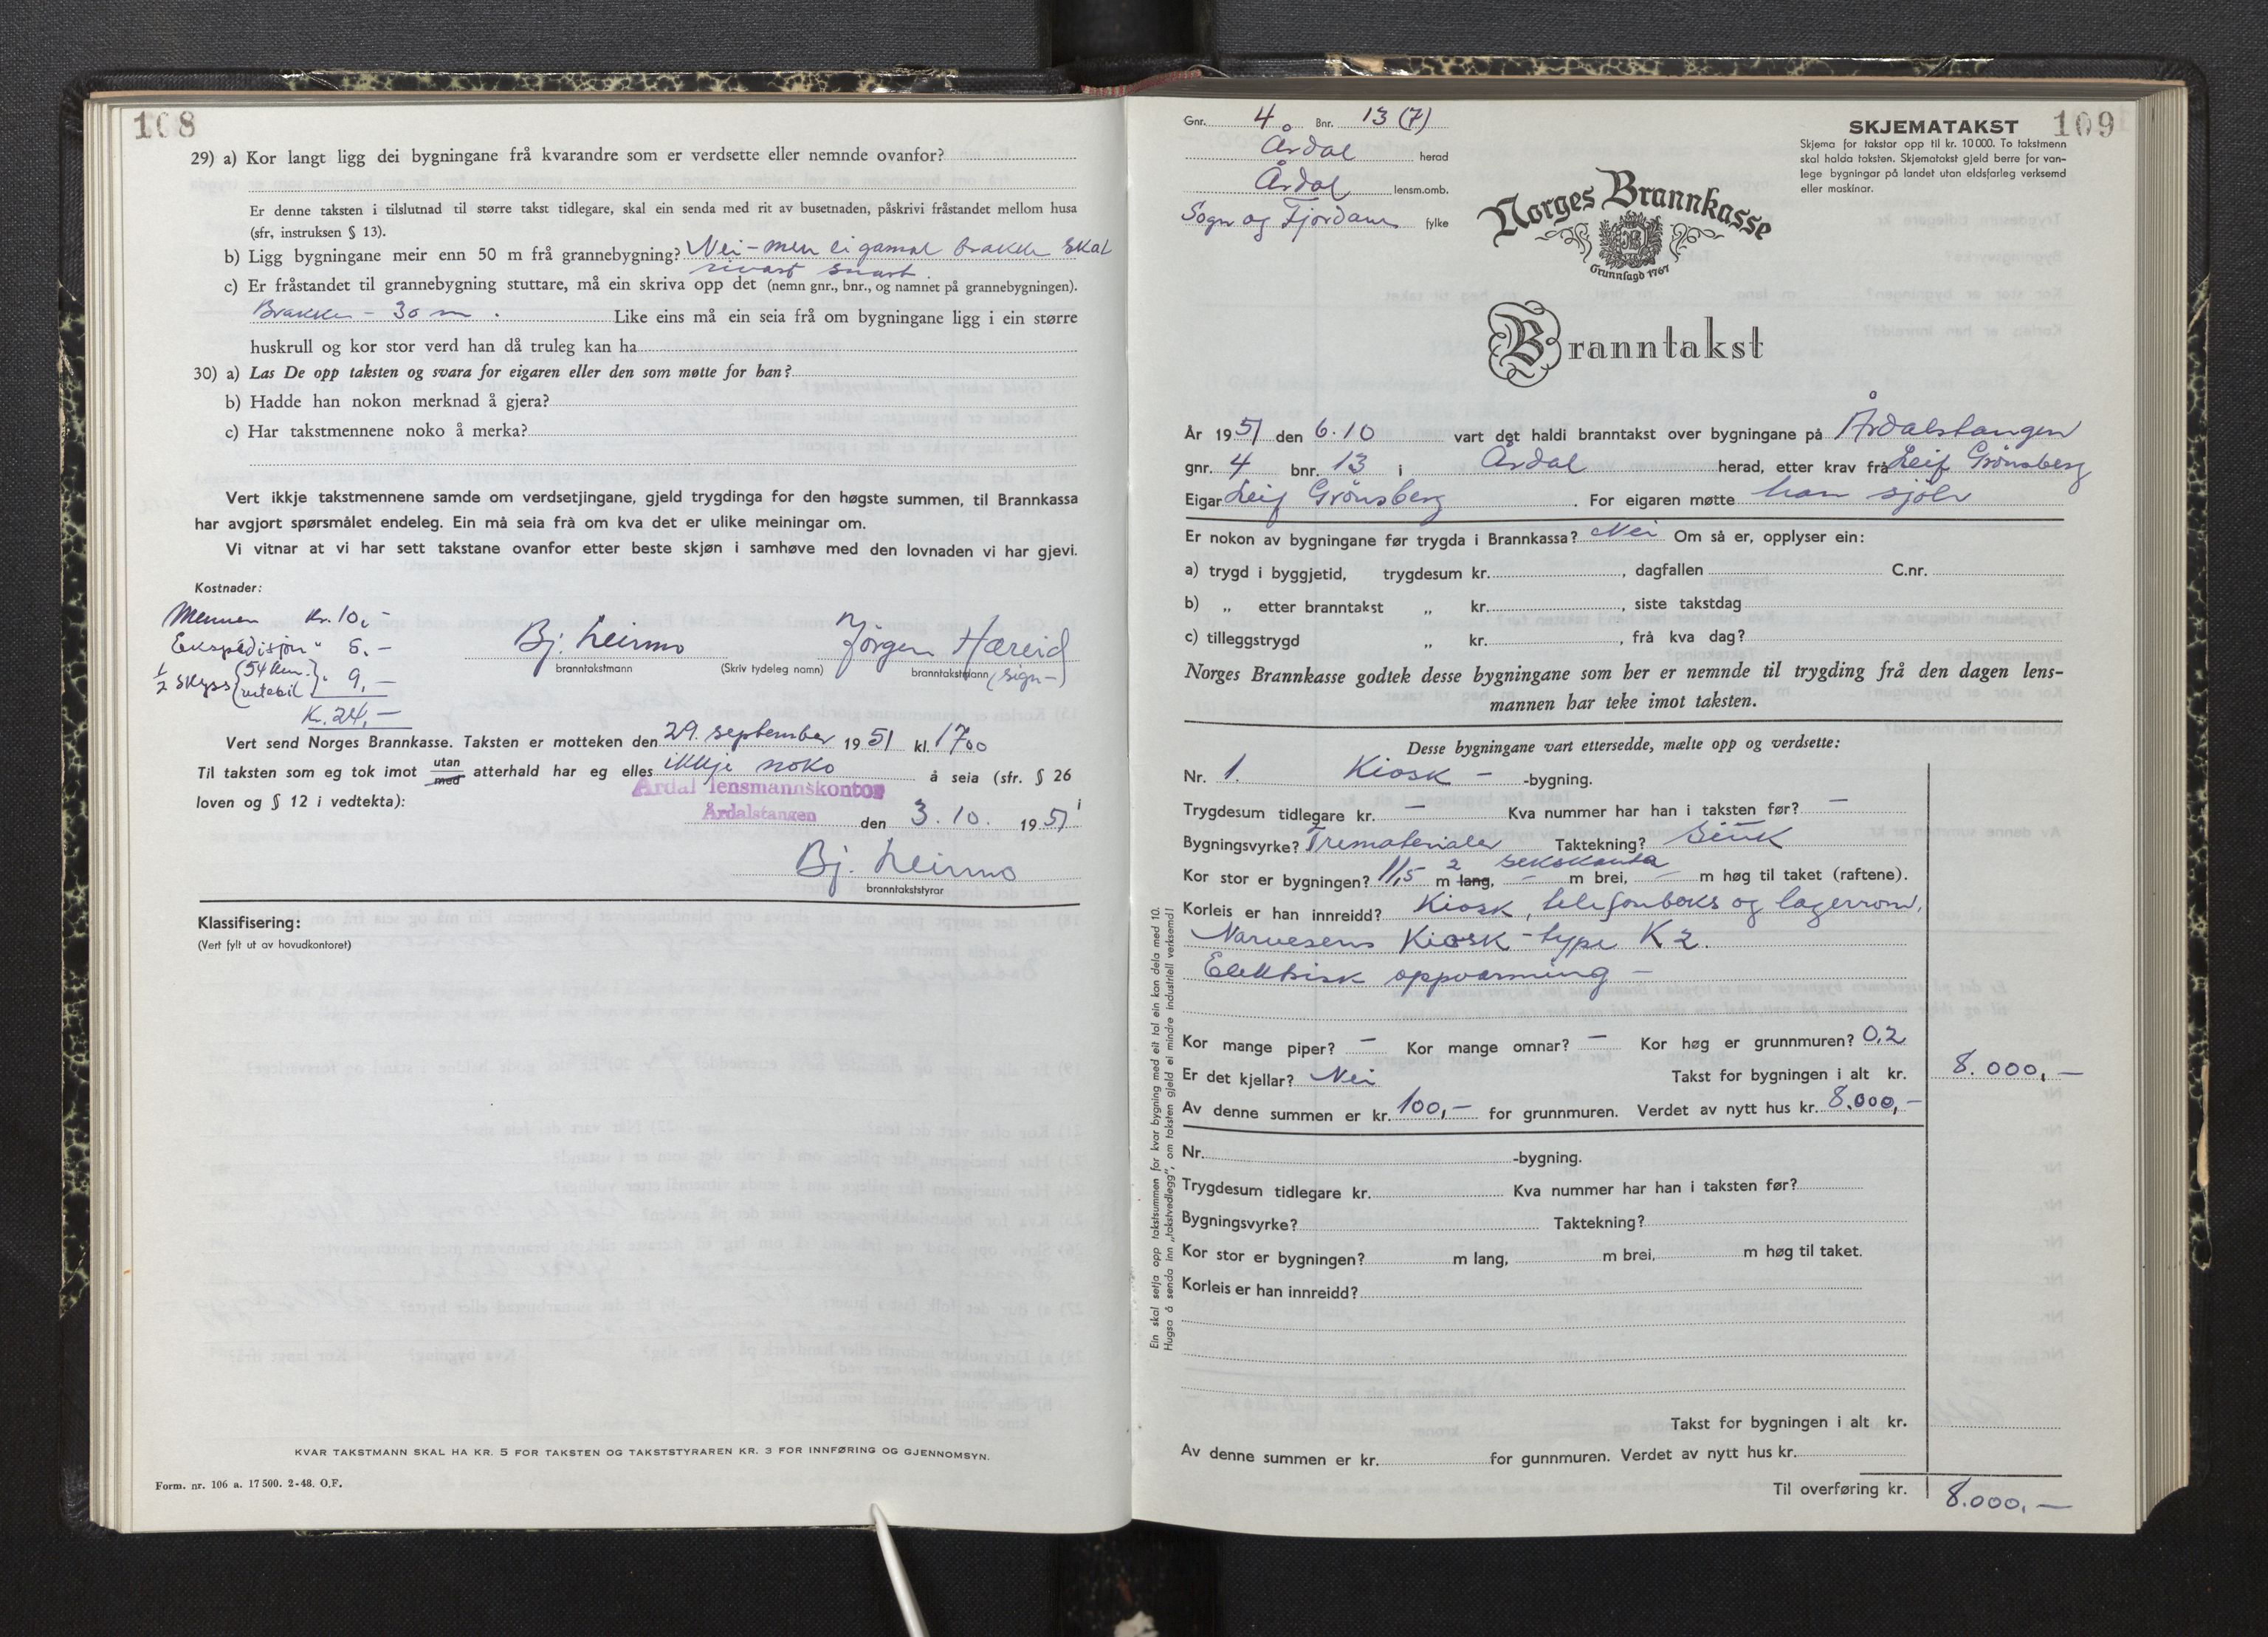 108
29) a) Kor langt ligg dei bygningane frå kvarandre som er verdsette eller nemnde ovanfor?
Er denne taksten i tilslutnad til større takst tidlegare, skal ein senda med rit av busetnaden, påskrivi fråstandet mellom husa
(sfr, instruksen § 13).
b) Ligg bygningane meir enn 50 m frå grannebygning? Nei - men ei gamal brakke skal
rivast snart.
c) Er fråstandet til grannebygning stuttare, må ein skriva opp det (nemn gnr., bnr., og namnet på grannebygningen).
Brakke - 30 m. Like eins må ein seia frå om bygningane ligg i ein større
huskrull og kor stor verd han då truleg kan ha
30) a) Las De opp taksten og svara for eigaren eller den som møtte for han?
b) Hadde han nokon merknad å gjera?
c) Har takstmennene noko å merka?
Vert ikkje takstmennene samde om verdsetjingane, gjeld trygdinga for den høgste summen, til Brannkassa
har avgjort spørsmålet endeleg. Ein må seia frå om kva det er ulike meiningar om.
Vi vitnar at vi har sett takstane ovanfor etter beste skjøn i samhøve med den lovnaden vi har gjevi.
Kostnader:
Mennen Kr. 10,-
Ekspedisjon " 5,-
1/2 Skyss (54 km. " 9,-
Kr. 24,-
Bj. Leirmo
Jørgen Hæreid
branntakstmann (Skriv tydeleg namn) branntakstmann (sign-)
Vert send Norges Brannkasse. Taksten er motteken den 29. september 1951 kl. 1700
Til taksten som eg tok imot utan med atterhald har eg elles ikkje noko å seia (sfr. § 26
loven og § 12 i vedtekta):
Årdal lensmannskontor
Årdalstangen den 3.10. 1951
Bj. Leirmo
branntakststyrar
Klassifisering:
(Vert fylt ut av hovudkontoret)
KVAR TAKSTMANN SKAL HA KR. 5 FOR TAKSTEN OG TAKSTSTYRAREN KR. 3 FOR INNFØRING OG GJENNOMSYN.
Form. nr. 106 a. 17 500. 2-48. O.F.
109
Gnr. 4 Bnr. 13 (7)
Årdal herad
Årdal lensm.omb.
Sogn og Fjordane fylke
SKJEMATAKST
Skjema for takstar opp til kr. 10 000. To takstmenn
skal halda taksten. Skjematakst gjeld berre for van-
lege bygningar på landet utan eldsfarleg verksemd
eller maskinar.
Norges Brannkasse
Grunnlagd 1767
Branntakst
År 1951 den 6.10 vart det haldi branntakst over bygningane på Årdalstangen
gnr. 4 bnr. 13 i Årdal herad, etter krav frå Leif Grønsberg
Eigar Leif Grønsberg. For eigaren møtte han sjølv
Er nokon av bygningane før trygda i Brannkassa? Nei Om så er, opplyser ein:
a) trygd i byggjetid, trygdesum kr. , dagfallen C.nr.
b) „ etter branntakst „ kr. , siste takstdag
c) tilleggstrygd „ kr. , frå kva dag?
Norges Brannkasse godtek desse bygningane som her er nemnde til trygding frå den dagen lens-
mannen har teke imot taksten.
Desse bygningane vart ettersedde, mælte opp og verdsette:
Nr. 1. Kiosk - -bygning.
Trygdesum tidlegare kr. - Kva nummer har han i taksten før? -
Bygningsvyrke? Trematerialer Taktekning? Sink
Kor stor er bygningen? 11,5 m2 lang, sekskanta - m brei, - m høg til taket (raftene).
Korleis er han innreidd? Kiosk, telefonboks og lagerrom,
Narvesens Kiosk-type K 2.
Elektrisk oppvarming -
Kor mange piper? - Kor mange omnar? - Kor høg er grunnmuren? 0,2
Er det kjellar? Nei Takst for bygningen i alt kr. 8.000,-
Av denne summen er kr. 100,- for grunnmuren. Verdet av nytt hus kr. 8.000,-
Nr. -bygning.
Trygdesum tidlegare kr. Kva nummer har han i taksten før?
Bygningsvyrke? Taktekning?
Kor stor er bygningen? m lang, m brei, m høg til taket.
Korleis er han innreidd?
Takst for bygningen i alt kr.
Av denne summen er kr. for gunnmuren. Verdet av nytt hus kr.
Til overføring kr. 8.000,-
Ein skal setja opp takstsummen for kvar bygning med eit tal ein kan dela med 10.
Hugsa å senda inn „takstvedlegg", om taksten gjeld ei mindre industriell verksemd!